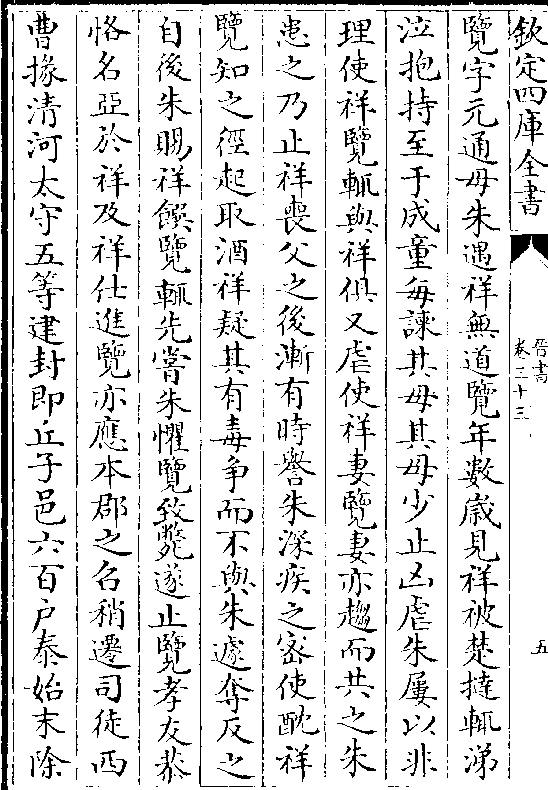 欽定四庫全書
晉書
卷三十三
五
覽字元通母朱遇祥無道覽年數歳見祥被楚撻輒涕
泣抱持至于成童每諫其母其母少止凶虐朱屢以非
理使祥覽輒與祥俱又虐使祥妻覽妻亦趨而共之朱
患之乃止祥喪父之後漸有時譽朱深疾之密使酖祥
覽知之徑起取酒祥疑其有毒争而不與朱遽奪反之
自後朱賜祥饌覽輒先嘗朱懼覽致斃遂止覽孝友恭
恪名亞於祥及祥仕進覽亦應本郡之召稍遷司徒西
曹掾清河太守五等建封即丘子邑六百户泰始末除